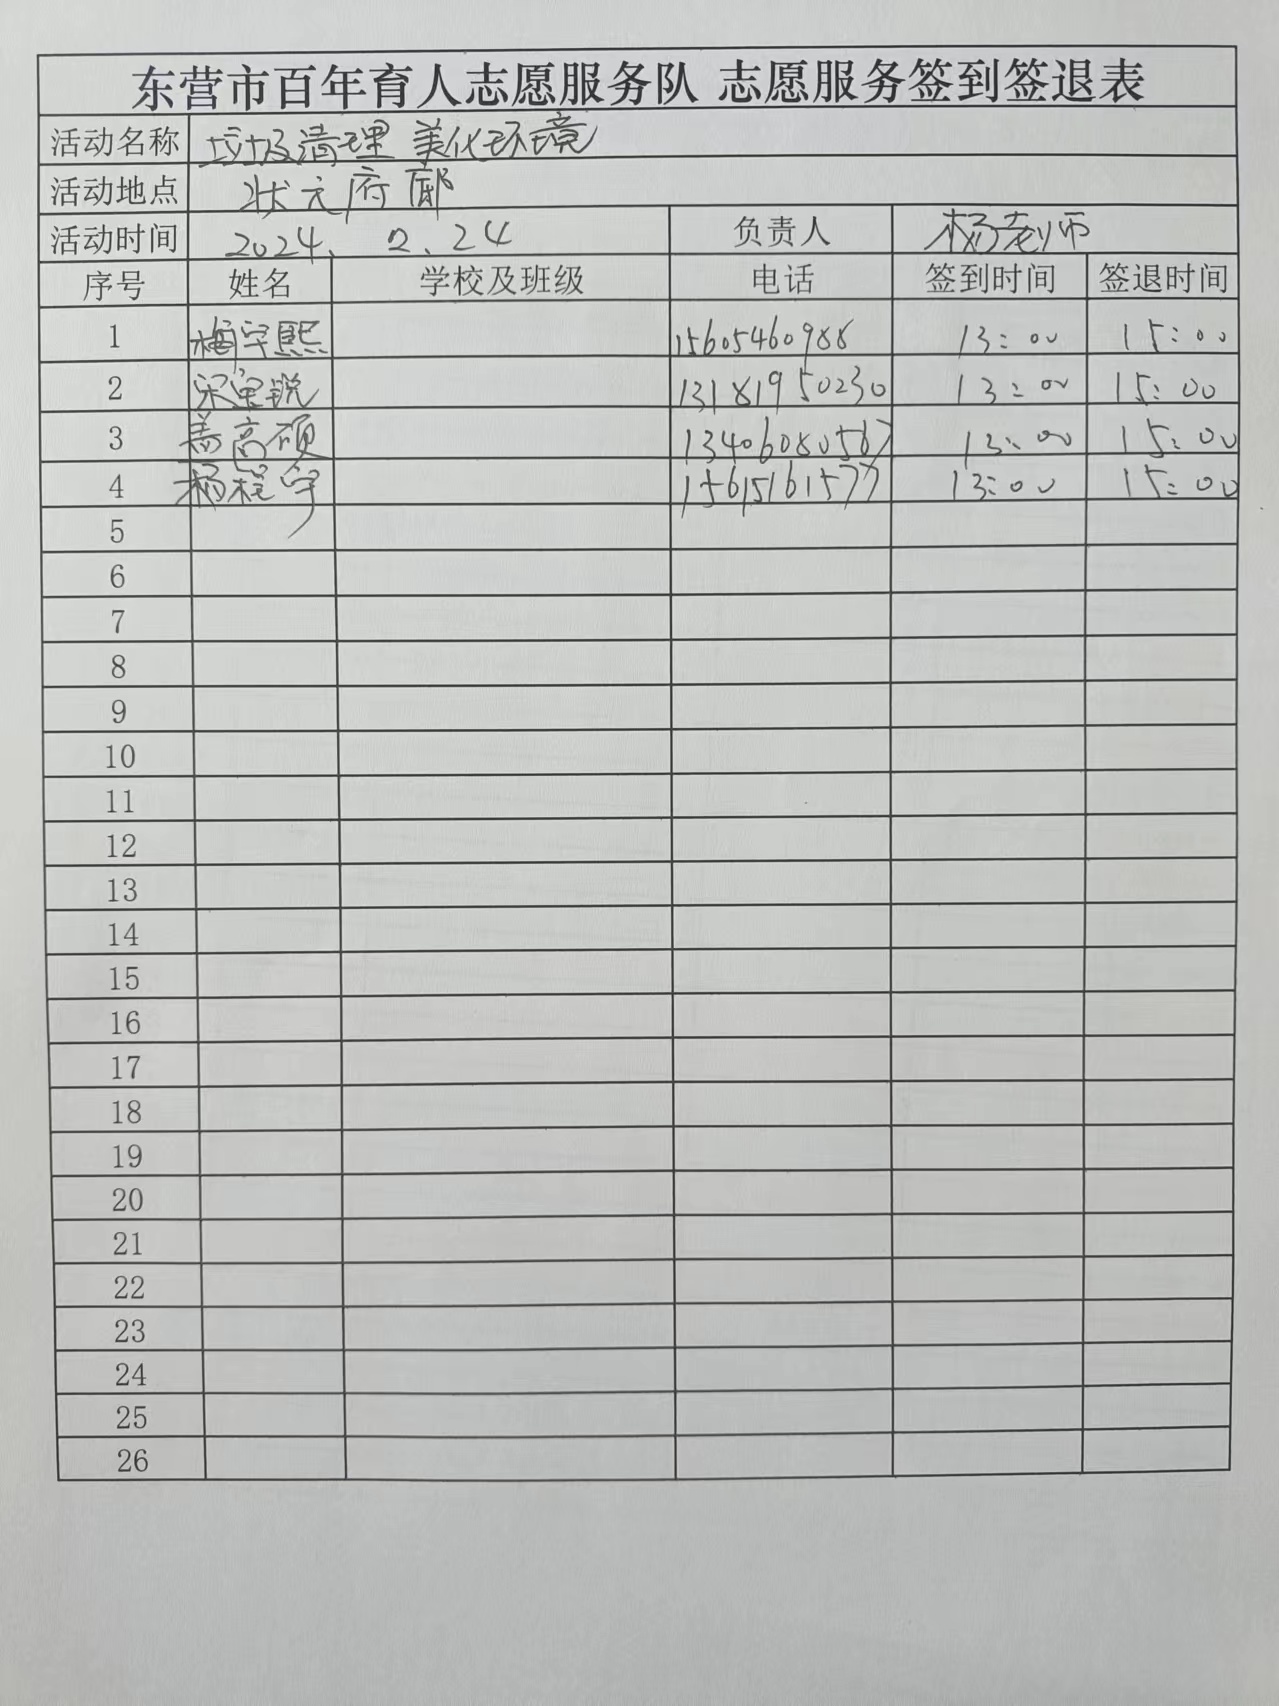 东营市百年育人志愿服务队 志愿服务签到签退表
活动名称 垃圾清理 美化环境
活动地点 状元府邸
活动时间 2024.2.24 负责人 杨老师
序号 姓名 学校及班级 电话 签到时间 签退时间
1 梅宇熙 15605460988 13:00 15:00
2 宋宝锐 13181950230 13:00 15:00
3 盖高硕 13406080567 13:00 15:00
4 杨程宇 15615161577 13:00 15:00
5
6
7
8
9
10
11
12
13
14
15
16
17
18
19
20
21
22
23
24
25
26